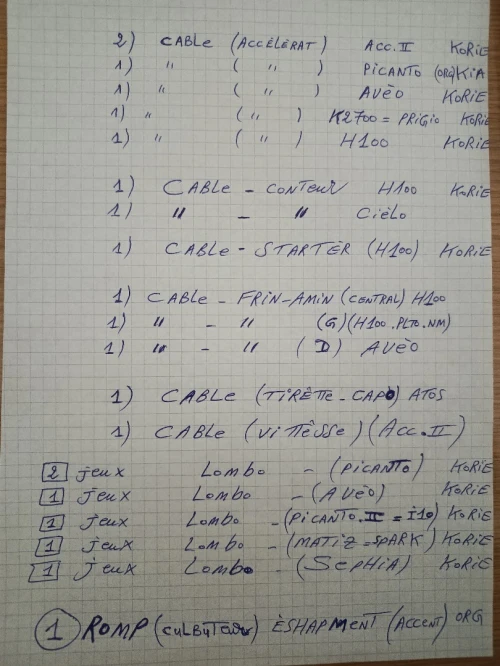 2) CABLE (ACCÈLÈRAT) ACC.II KORIE
1) " ( " ) PICANTO (ORG) KIA
1) " ( " ) AVÈO KORIE
1) " ( " ) K2700 = PRIGIO KORIE
1) " ( " ) H100 KORIE
1) CABLE - CONTEUR H100 KORIE
1) " - " CIÈLO
1) CABLE - STARTÈR (H100) KORIE
1) CABLE - FRIN-AMIN (CENTRAL) H100
1) " - " (G) (H100.PLTO.NM)
1) " - " (D) AVÈO
1) CABLE (TIRÈTTE - CAPO) ATOS
1) CABLE (VITTÈSSE) (ACC.II)
2 jeux LOMBO - (PICANTO) KORIE
1 jeux LOMBO - (AVÈO) KORIE
1 jeux LOMBO - (PICANTO.II = I10) KORIE
1 jeux LOMBO - (MATIZ = SPARK) KORIE
1 jeux LOMBO - (SEPHIA) KORIE
1 ROMP (CULBUTEUR) ÈSHAPMENT (ACCENT) ORG